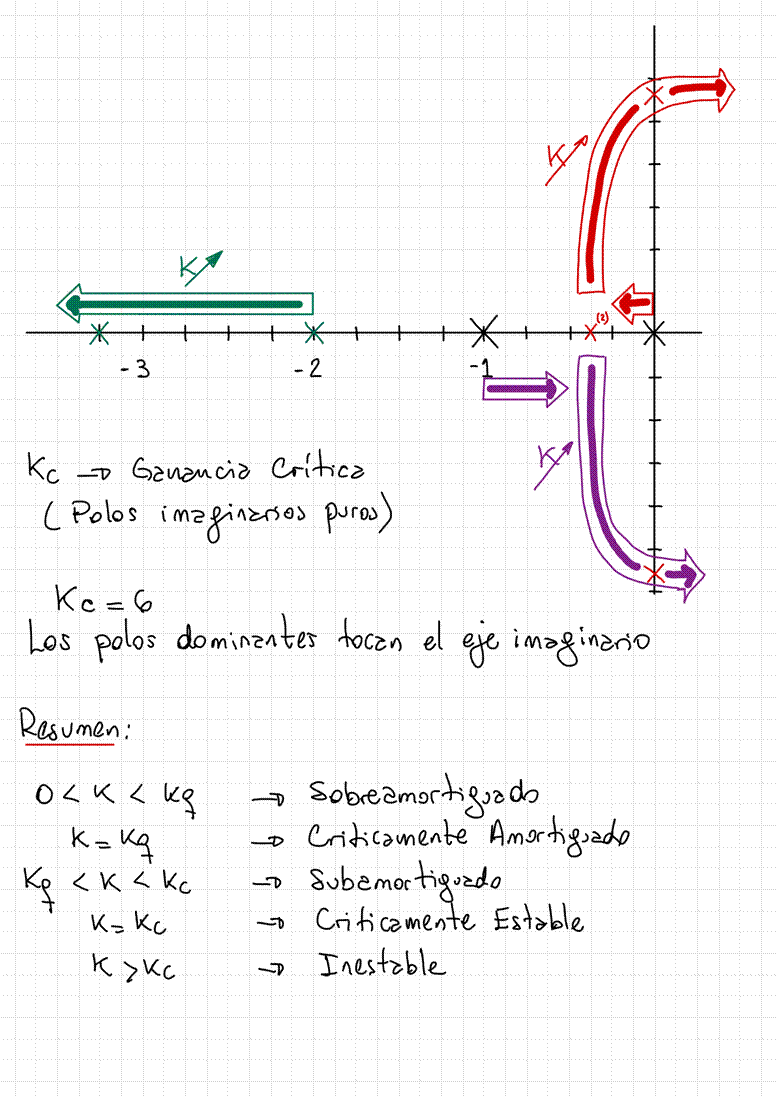 K
K
(2)
-3 -2 -1
K
Kc → Ganancia Crítica
(Polos imaginarios puros)
Kc = 6
Los polos dominantes tocan el eje imaginario
Resumen:
0 < K < Kq → Sobreamortiguado
K = Kq → Criticamente Amortiguado
Kq < K < Kc → Subamortiguado
K = Kc → Criticamente Estable
K > Kc → Inestable